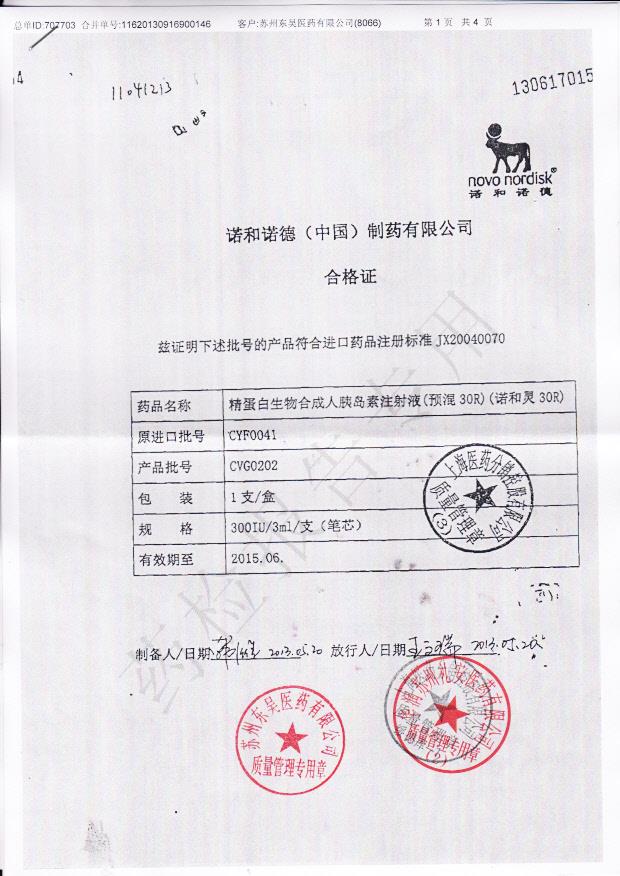 总单ID:707703 合并单号:11620130916900146 客户:苏州东吴医药有限公司(8066) 第 1 页 共 4 页
11041213
130617015
novo nordisk®
诺和诺德
诺和诺德（中国）制药有限公司
合格证
兹证明下述批号的产品符合进口药品注册标准 JX20040070
药品名称 精蛋白生物合成人胰岛素注射液(预混 30R)(诺和灵 30R)
原进口批号 CYF0041
产品批号 CVG0202
包 装 1支/盒
规 格 300IU/3ml/支（笔芯）
有效期至 2015.06.
药检报告专用
上海医药分销控股有限公司
质量管理章
(3)
制备人/日期: 2013.05.20 放行人/日期 2013.05.20
苏州东吴医药有限公司
质量管理专用章
苏州礼安医药有限公司
质量管理专用章
(2)